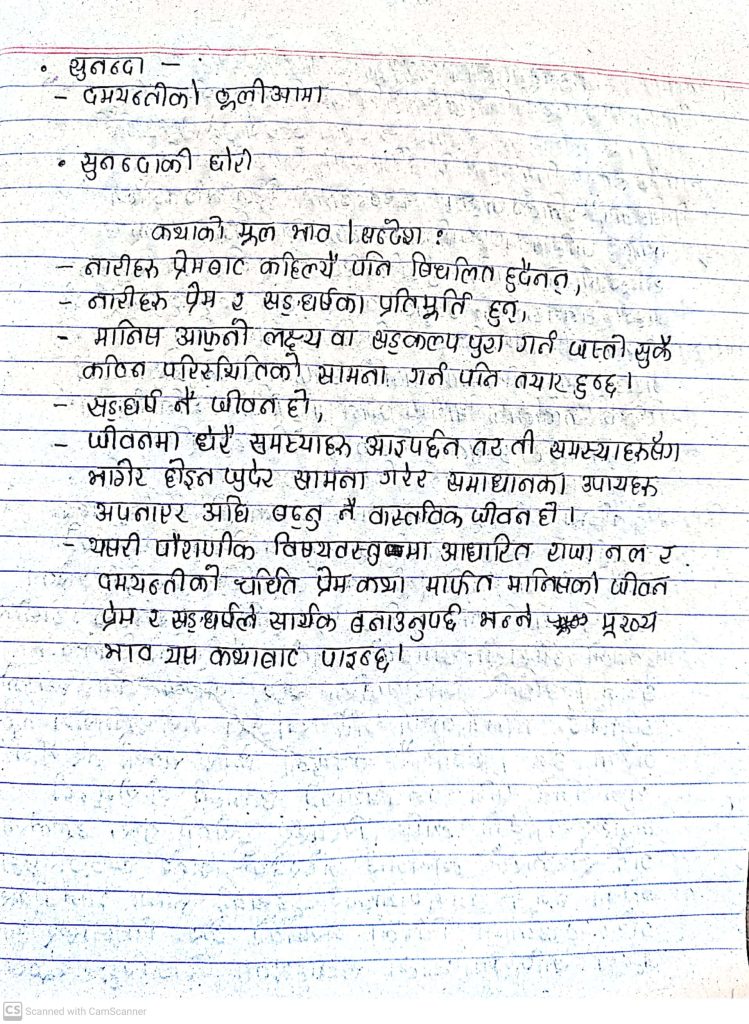 • सुनन्दा –
– दमयन्तीको ठूलीआमा
• सुनन्दाकी छोरी
कथाको मूल भाव / सन्देश :
– नारीहरु प्रेमबाट कहिल्यै पनि विचलित हुदैनन्,
– नारीहरु प्रेम र सङ्घर्षका प्रतिमूर्ति हुन्,
– मानिस आफ्नो लक्ष्य वा सङ्कल्प पुरा गर्न जस्तो सुकै
कठिन परिस्थितिको सामना गर्न पनि तयार हुन्छ।
– सङ्घर्ष नै जीवन हो,
– जीवनमा धेरै समस्याहरु आइपर्छन तर ती समस्याहरुसँग
भागेर होइन जुधेर सामना गरेर समाधानका उपायहरु
अपनाएर अघि बढ्नु नै वास्तविक जीवन हो।
– यसरी पौराणीक विषयवस्तुमा आधारित राजा नल र
दमयन्तीको चर्चित प्रेम कथा मार्फत मानिसको जीवन
प्रेम र सङ्घर्षले सार्थक बनाउनुपर्छ भन्ने मूख्य
भाव यस कथाबाट पाइन्छ।
CS Scanned with CamScanner